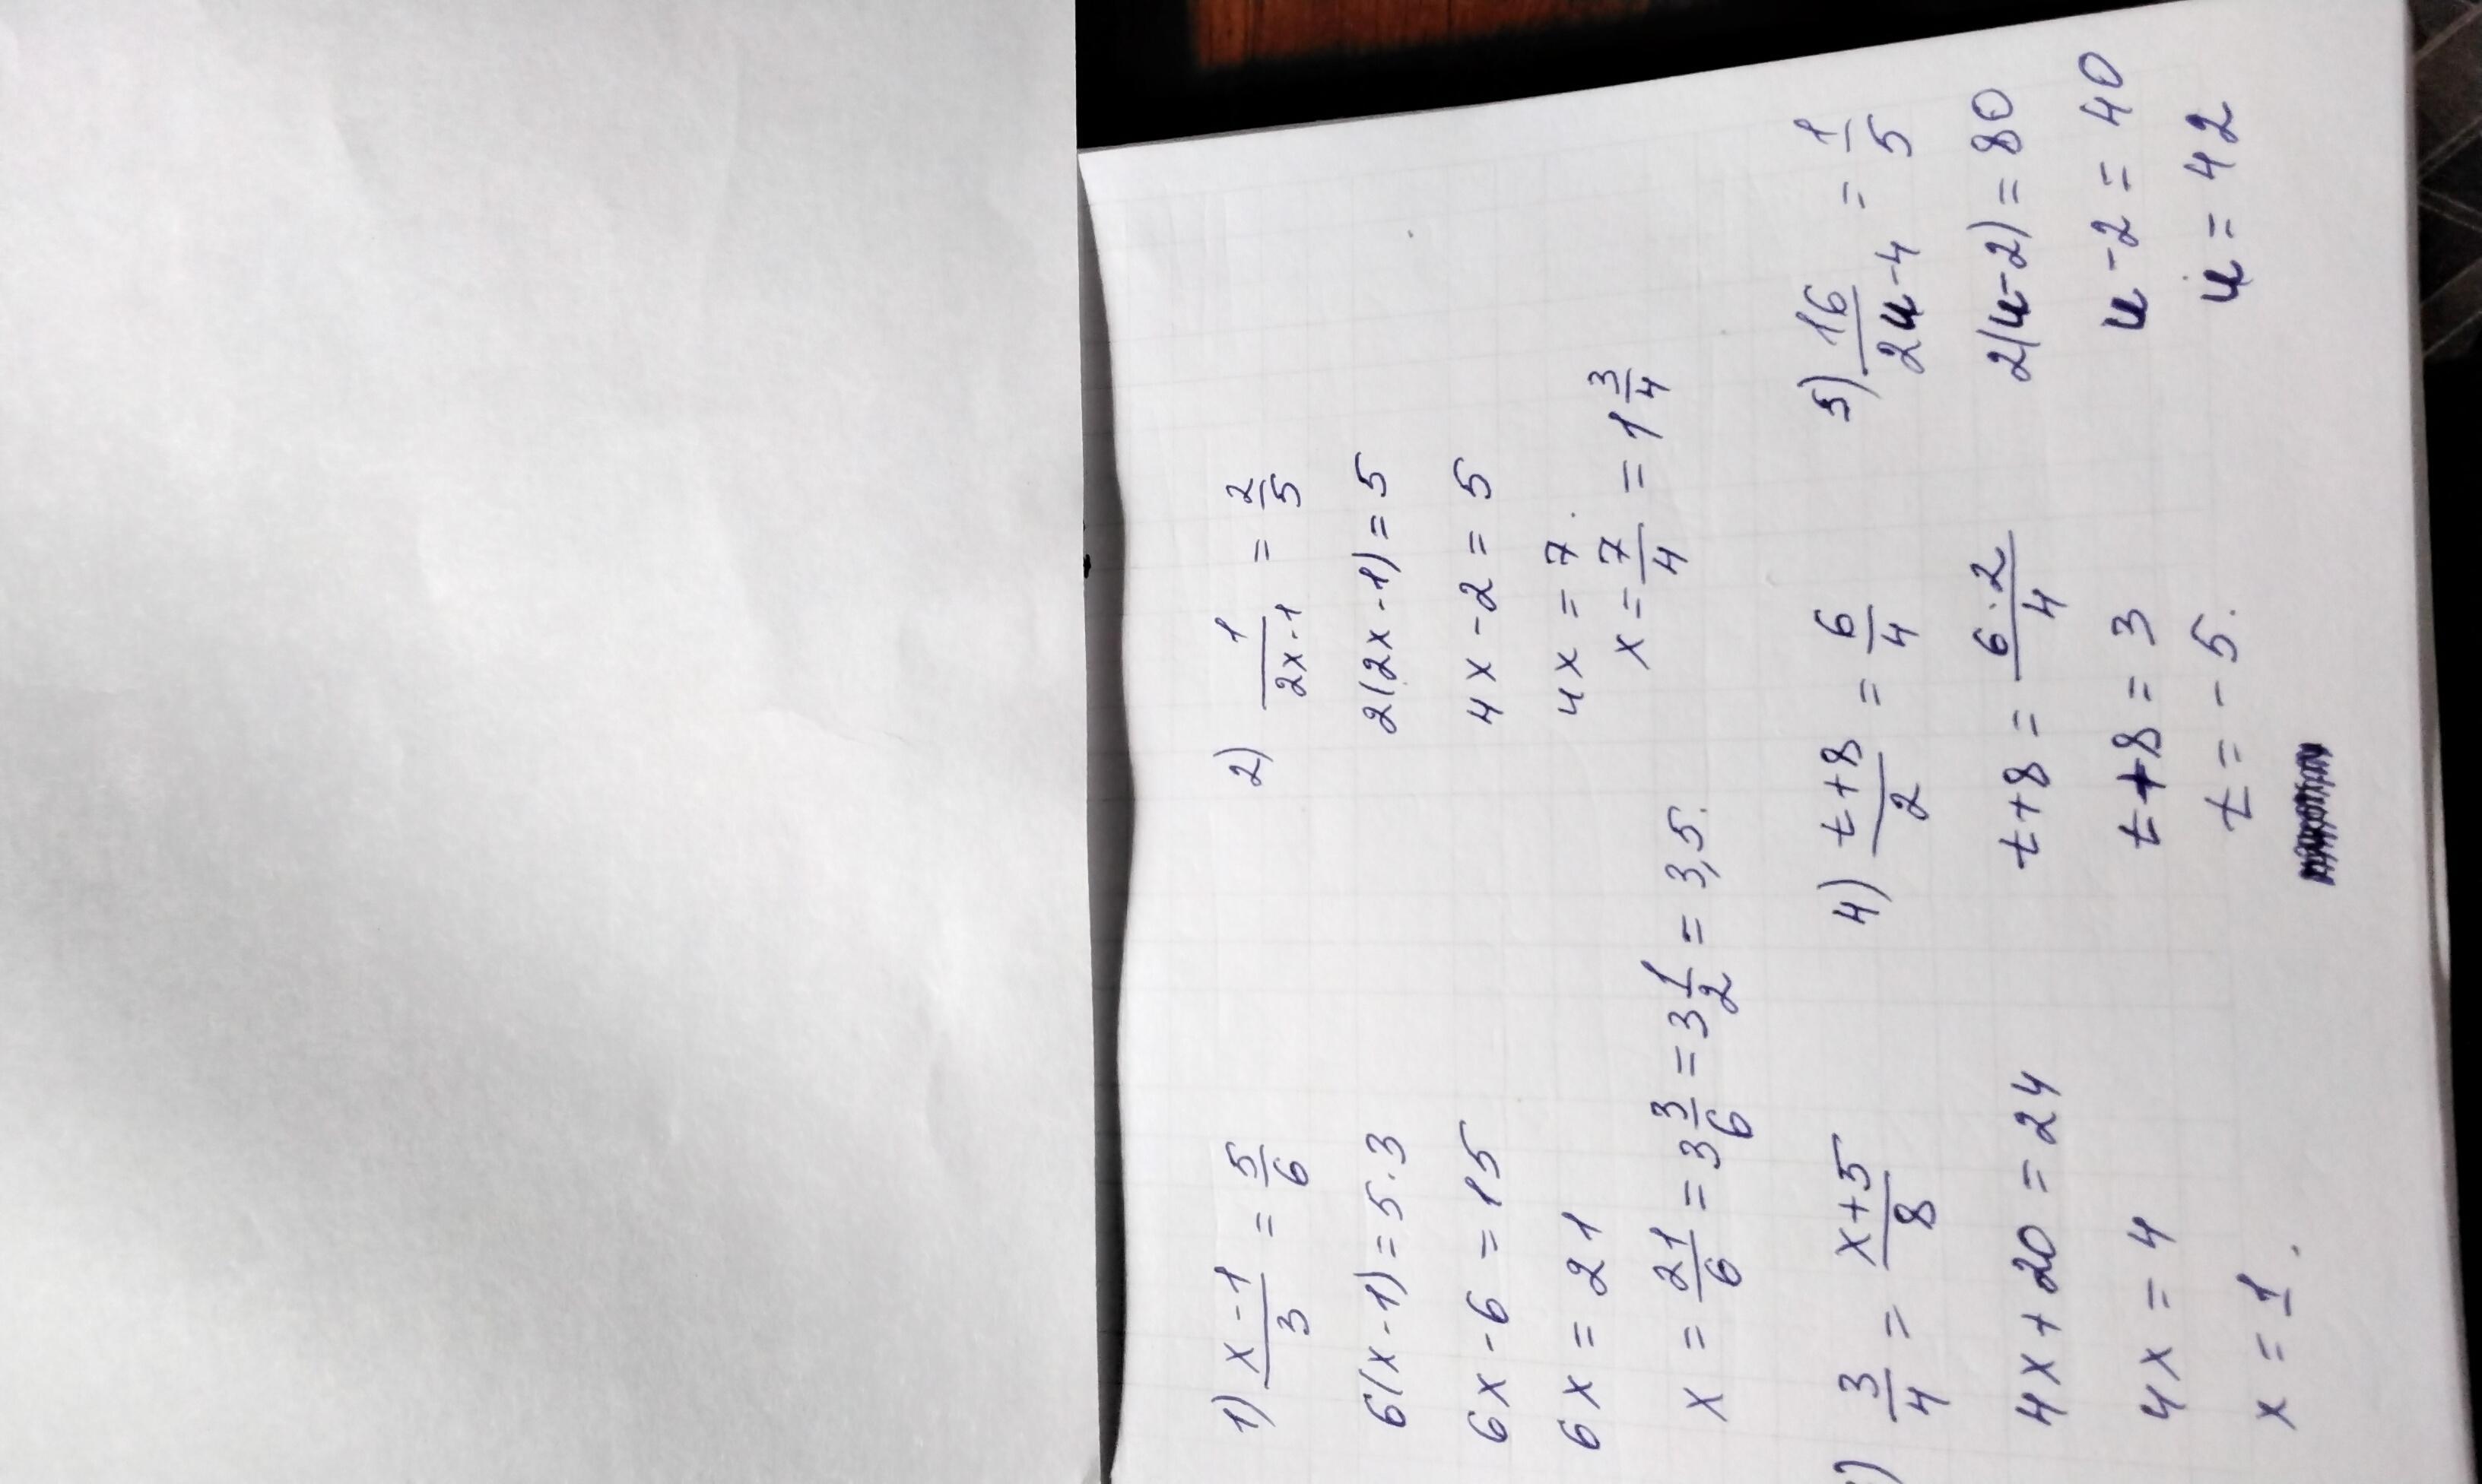 1) (x-1)/3 = 5/6
6(x-1) = 5·3
6x - 6 = 15
6x = 21
x = 21/6 = 3 3/6 = 3 1/2 = 3,5.
2) 1/(2x-1) = 2/5
2(2x-1) = 5
4x - 2 = 5
4x = 7.
x = 7/4 = 1 3/4
) 3/4 = (x+5)/8
4x + 20 = 24
4x = 4
x = 1.
4) (t+8)/2 = 6/4
t+8 = (6·2)/4
t+8 = 3
t = -5.
5) 16/(2u-4) = 1/5
2(u-2) = 80
u-2 = 40
u = 42